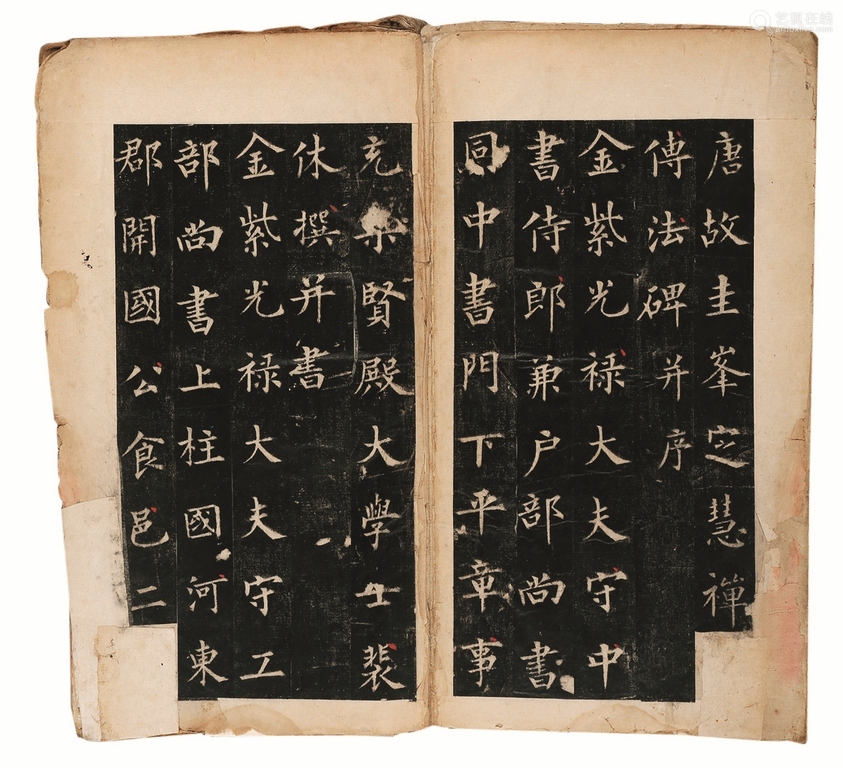 唐故圭峯定慧禪
傳法碑并序
金紫光禄大夫守中
書侍郎兼户部尚書
同中書門下平章事
充集賢殿大學士裴
休撰并書
金紫光禄大夫守工
部尚書上柱國河東
郡開國公食邑二